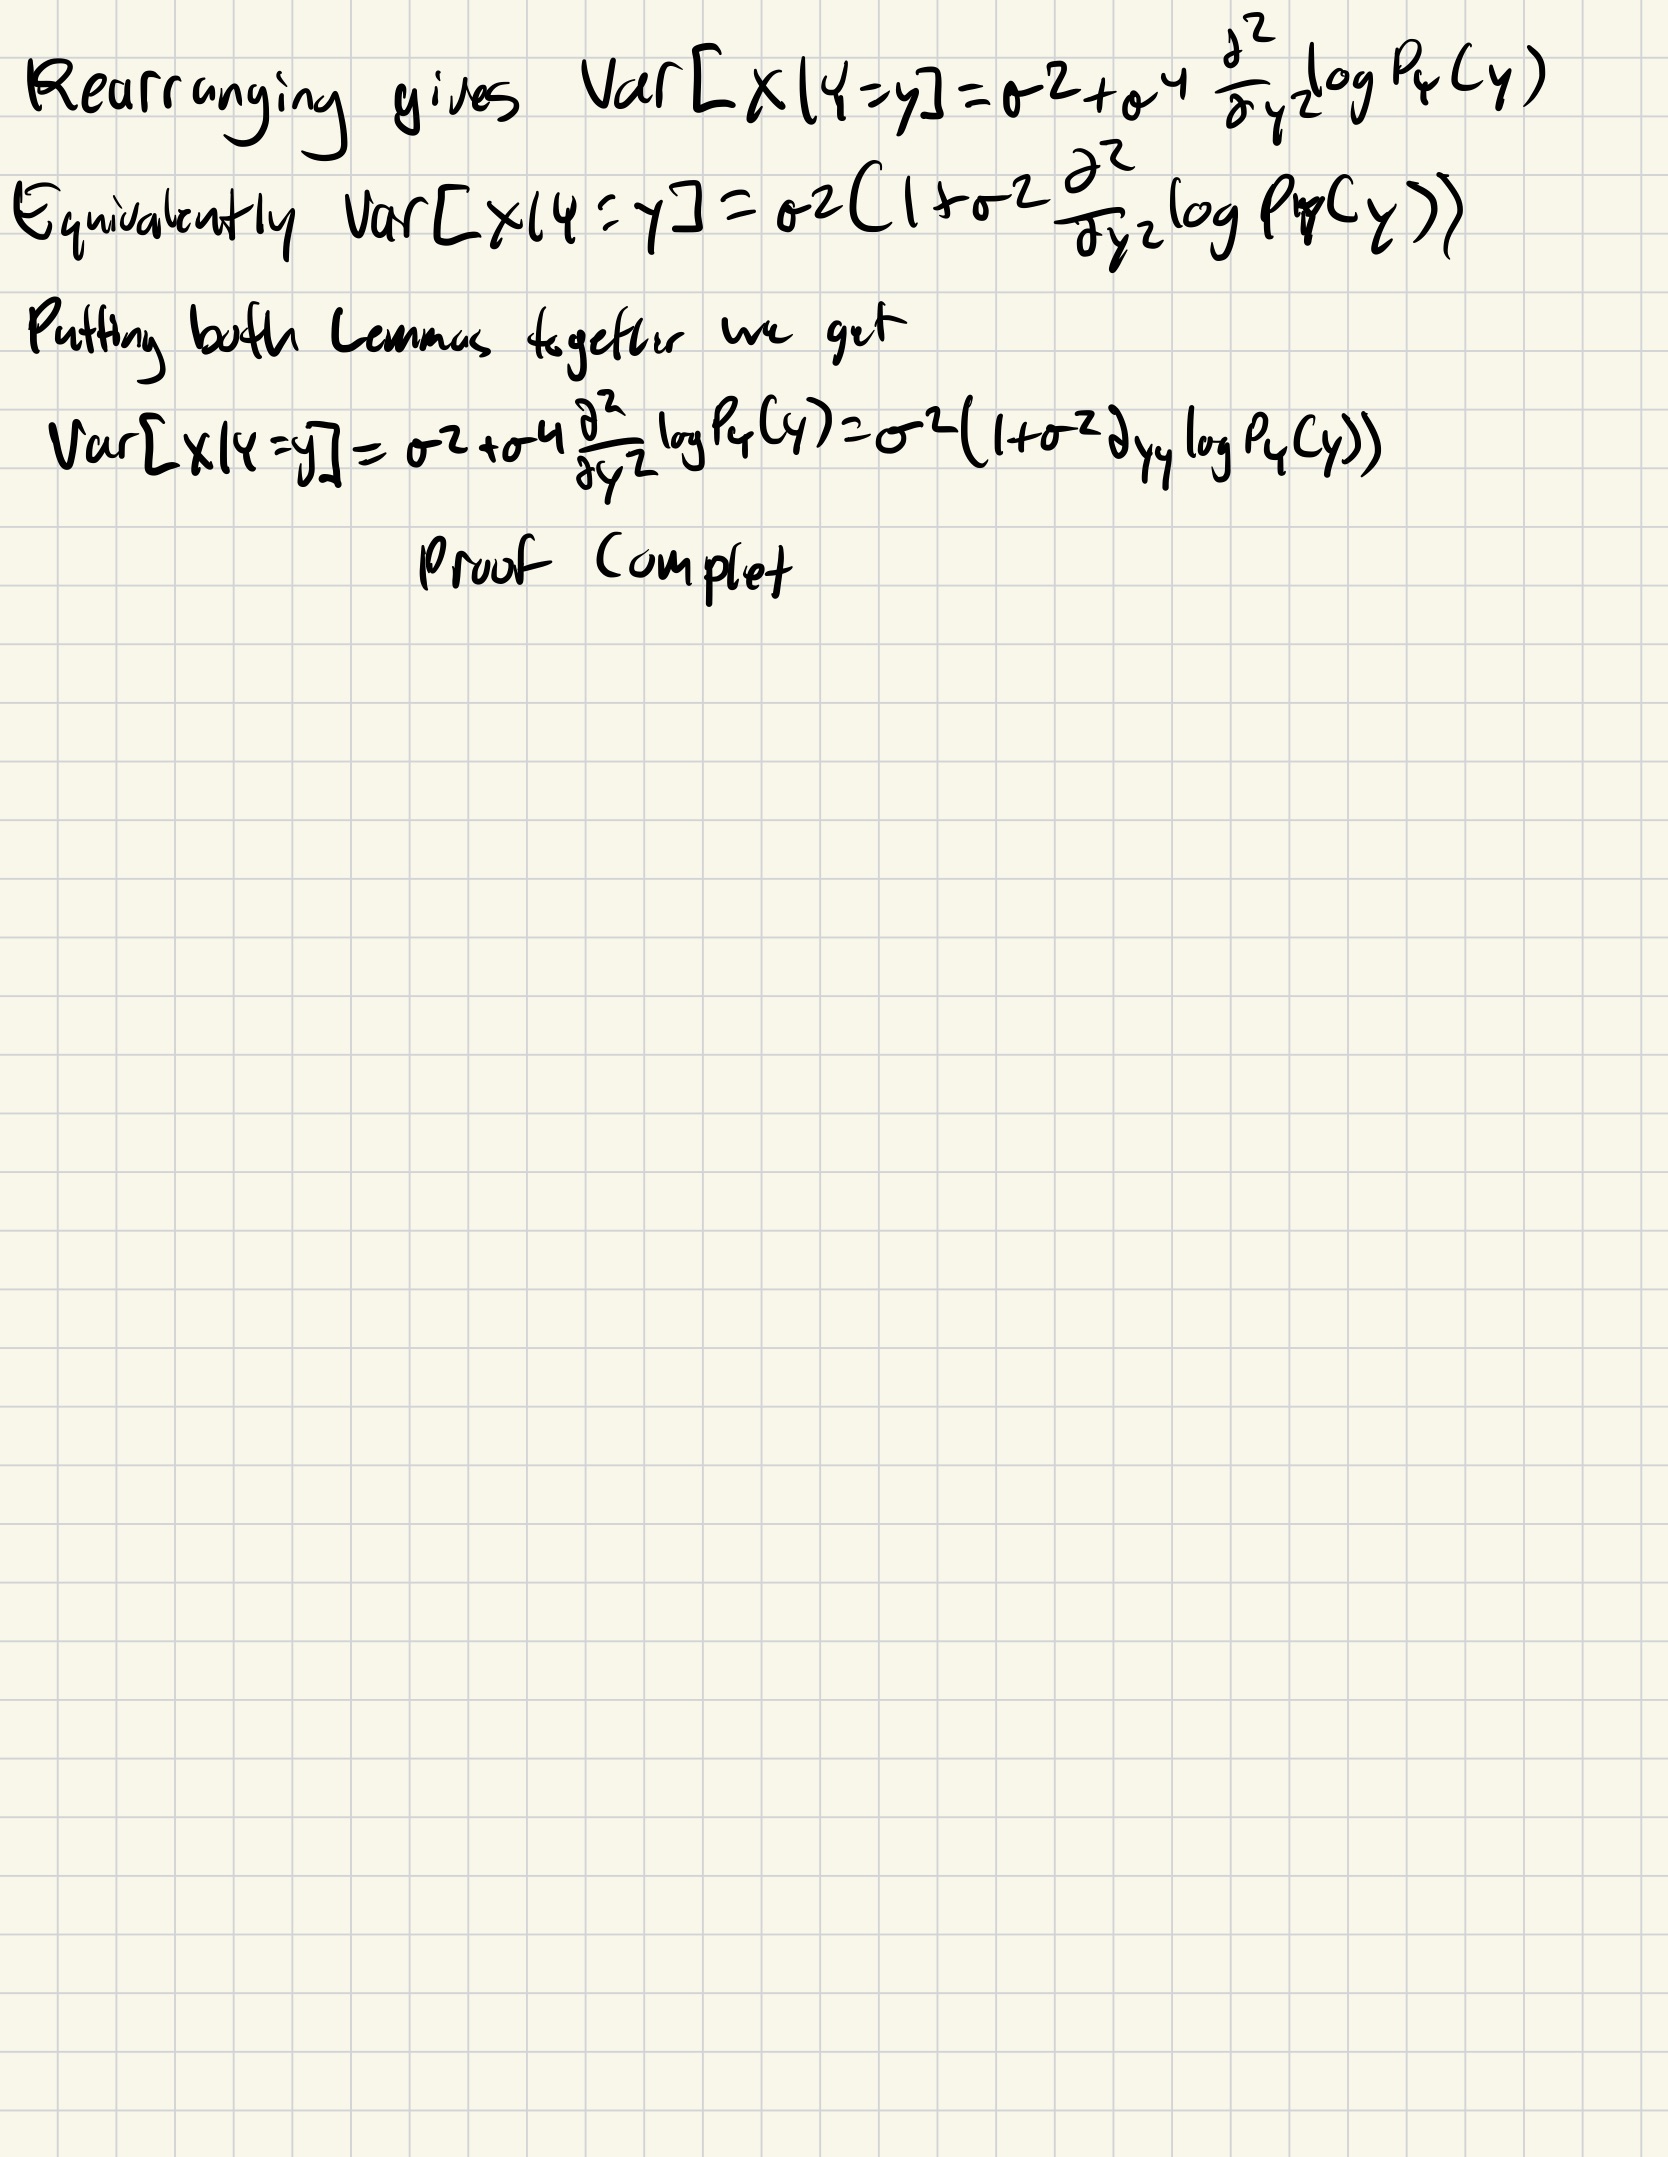 Rearranging gives Var[X|Y=y]=σ²+σ⁴ ∂²/∂y² log P_Y(y)
Equivalently Var[X|Y=y]=σ²(1+σ² ∂²/∂y² log P_Y(y))
Putting both Lemmas together we get
Var[X|Y=y]=σ²+σ⁴ ∂²/∂y² log P_Y(y)=σ²(1+σ² ∂_yy log P_Y(y))
Proof Complet